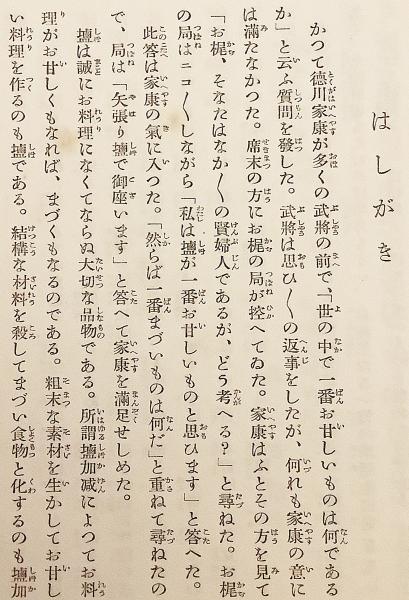 はしがき
かつて德川家康が多くの武將の前で、「世の中で一番お甘しいものは何である
か」と云ふ質問を發した。武將は思ひ〱の返事をしたが、何れも家康の意に
は滿たなかつた。席末の方にお梶の局が控へてゐた。家康はふとその方を見て
「お梶、そなたはなか〱の賢婦人であるが、どう考へる？」と尋ねた。お梶
の局はニコ〱しながら「私は鹽が一番お甘しいものと思ひます」と答へた。
此答は家康の氣に入つた。「然らば一番まづいものは何だ」と重ねて尋ねたの
で、局は「矢張り鹽で御座います」と答へて家康を滿足せしめた。
鹽は誠にお料理になくてならぬ大切な品物である。所謂鹽加減によつてお料
理がお甘しくもなれば、まづくもなるのである。粗末な素材を生かしてお甘し
い料理を作るのも鹽である。結構な材料を殺してまづい食物と化するのも鹽加